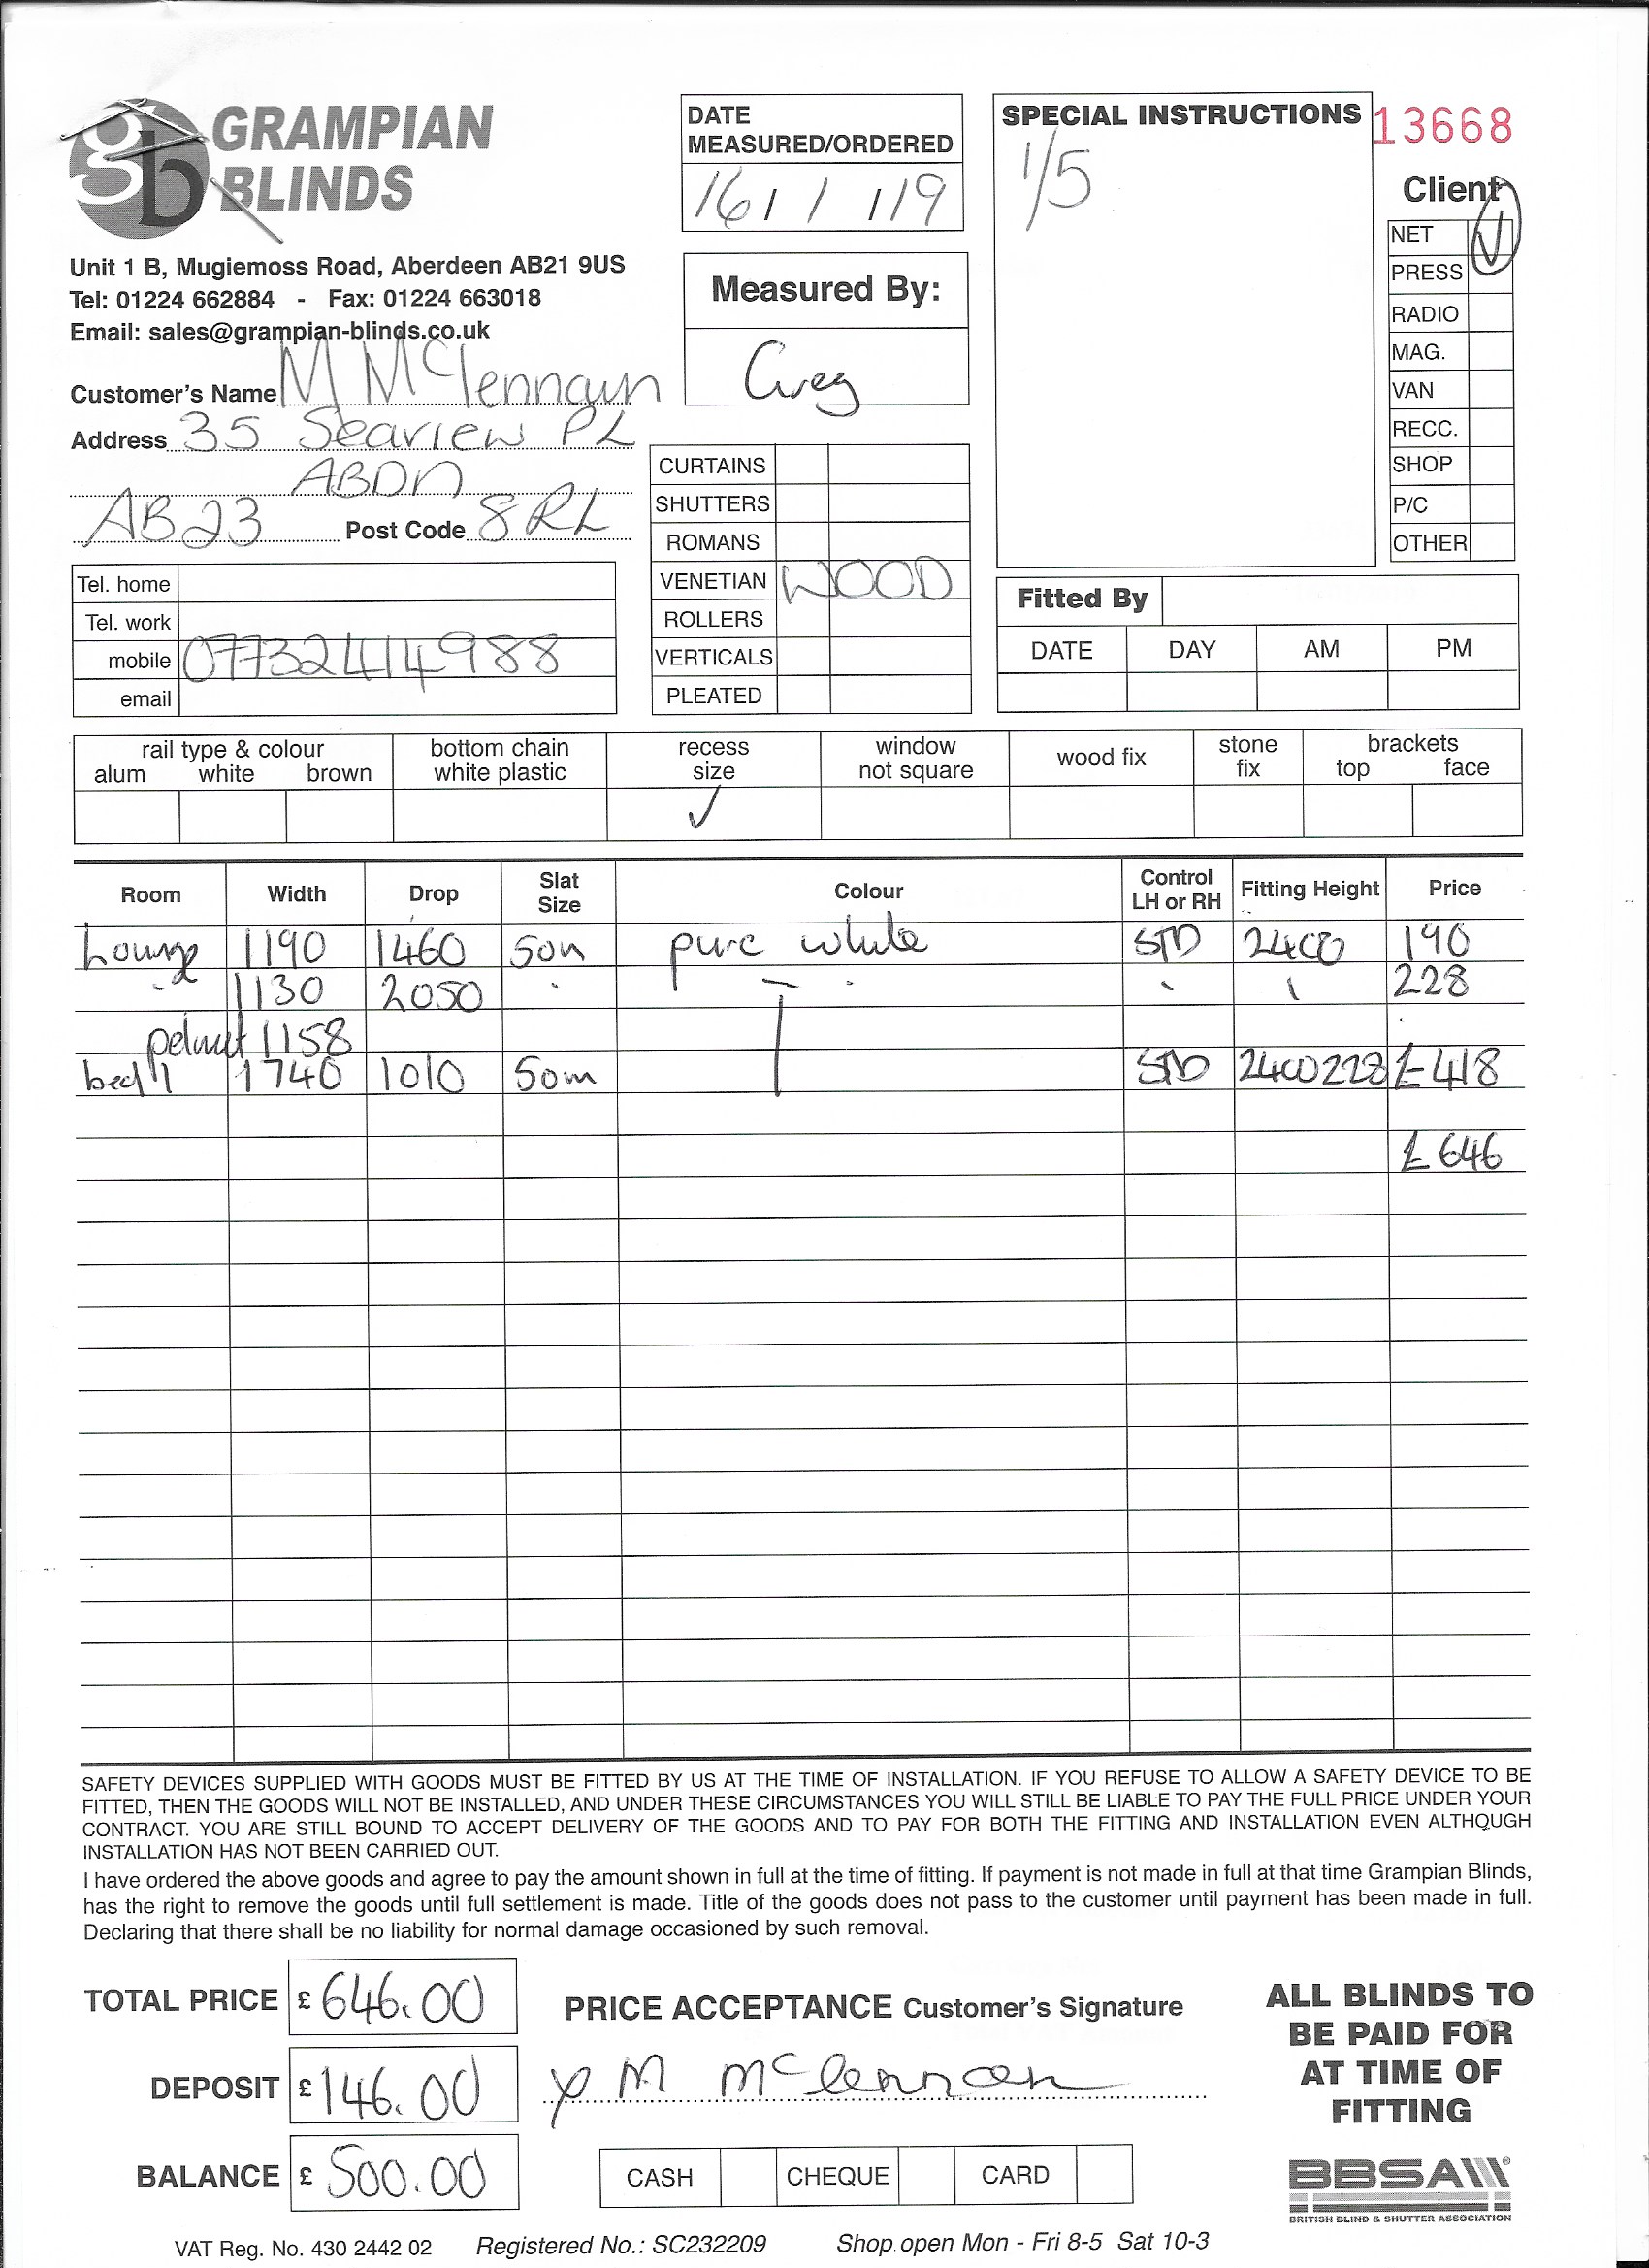 gb GRAMPIAN BLINDS
Unit 1 B, Mugiemoss Road, Aberdeen AB21 9US
Tel: 01224 662884 - Fax: 01224 663018
Email: sales@grampian-blinds.co.uk
Customer's Name M McLennan
Address 35 Seaview PL
ABDN
AB23 Post Code 8RL
Tel. home
Tel. work
mobile 07732414988
email
DATE MEASURED/ORDERED
16/1/19
Measured By:
Greg
CURTAINS
SHUTTERS
ROMANS
VENETIAN WOOD
ROLLERS
VERTICALS
PLEATED
SPECIAL INSTRUCTIONS
1/5
13668
Client
NET ✓
PRESS
RADIO
MAG.
VAN
RECC.
SHOP
P/C
OTHER
Fitted By
DATE DAY AM PM
rail type & colour bottom chain recess window wood fix stone brackets
alum white brown white plastic size not square fix top face
✓
Room Width Drop Slat Size Colour Control LH or RH Fitting Height Price
Lounge 1190 1460 50m pure white STD 2400 190
1130 2050 228
pelmet 1158
bed 1 1740 1010 50m STD 2400 228 £418
£646
SAFETY DEVICES SUPPLIED WITH GOODS MUST BE FITTED BY US AT THE TIME OF INSTALLATION. IF YOU REFUSE TO ALLOW A SAFETY DEVICE TO BE
FITTED, THEN THE GOODS WILL NOT BE INSTALLED, AND UNDER THESE CIRCUMSTANCES YOU WILL STILL BE LIABLE TO PAY THE FULL PRICE UNDER YOUR
CONTRACT. YOU ARE STILL BOUND TO ACCEPT DELIVERY OF THE GOODS AND TO PAY FOR BOTH THE FITTING AND INSTALLATION EVEN ALTHOUGH
INSTALLATION HAS NOT BEEN CARRIED OUT.
I have ordered the above goods and agree to pay the amount shown in full at the time of fitting. If payment is not made in full at that time Grampian Blinds,
has the right to remove the goods until full settlement is made. Title of the goods does not pass to the customer until payment has been made in full.
Declaring that there shall be no liability for normal damage occasioned by such removal.
TOTAL PRICE £646.00
DEPOSIT £146.00
BALANCE £500.00
PRICE ACCEPTANCE Customer's Signature
x M McLennan
CASH CHEQUE CARD
ALL BLINDS TO
BE PAID FOR
AT TIME OF
FITTING
BBSA
BRITISH BLIND & SHUTTER ASSOCIATION
VAT Reg. No. 430 2442 02 Registered No.: SC232209 Shop open Mon - Fri 8-5 Sat 10-3